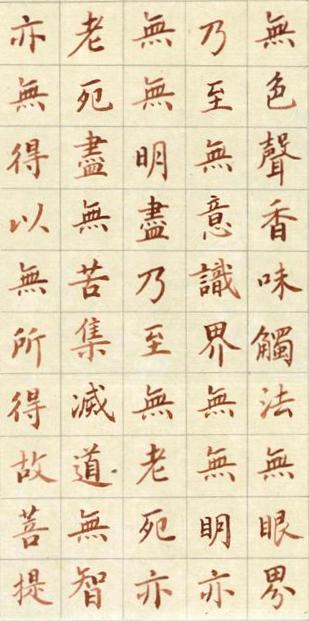 無色聲香味觸法無眼界
乃至無意識界無無明亦
無無明盡乃至無老死亦
老死盡無苦集滅道無智
亦無得以無所得故菩提